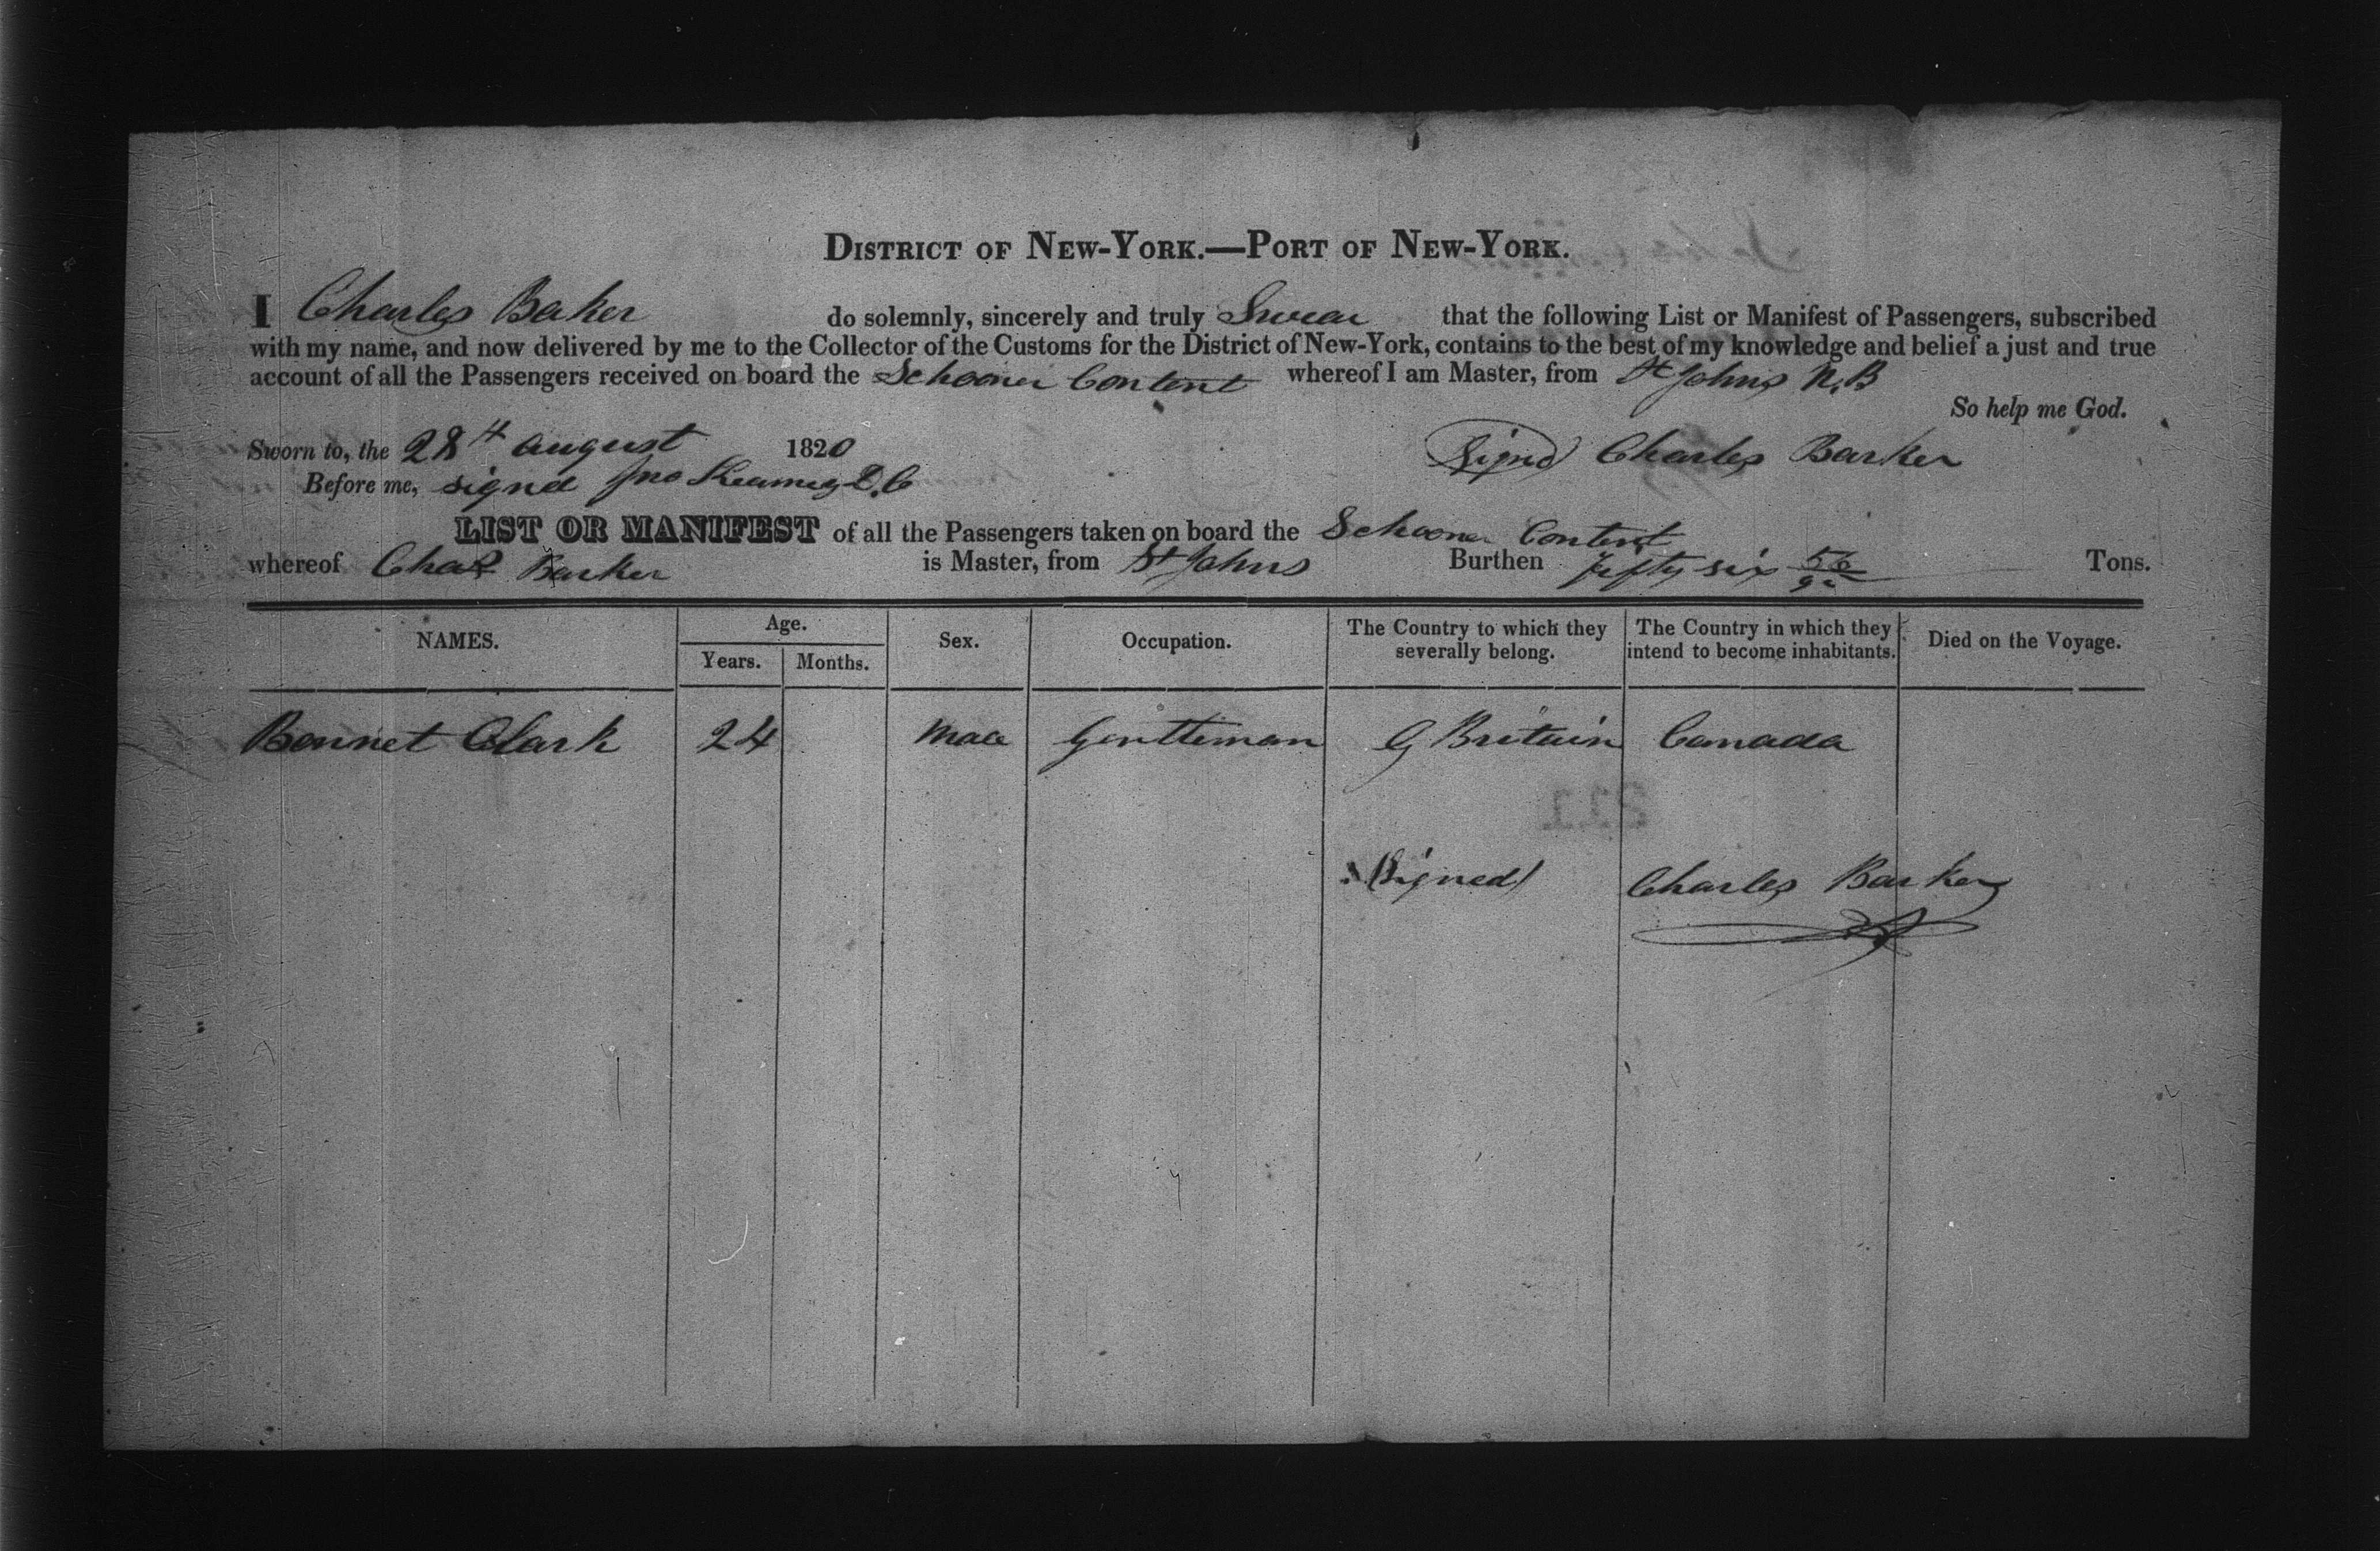 DISTRICT OF NEW-YORK.—PORT OF NEW-YORK.
I Charles Baker do solemnly, sincerely and truly Swear that the following List or Manifest of Passengers, subscribed
with my name, and now delivered by me to the Collector of the Customs for the District of New-York, contains to the best of my knowledge and belief a just and true
account of all the Passengers received on board the Schooner Content whereof I am Master, from St Johns N.B
So help me God.
Sworn to, the 28th august 1820 Signed Charles Barker
Before me, signed Jno Kearney D.C
LIST OR MANIFEST of all the Passengers taken on board the Schooner Content
whereof Chas Barker is Master, from St Johns Burthen fifty six 56/95 Tons.
NAMES. Age. Years. Months. Sex. Occupation. The Country to which they severally belong. The Country in which they intend to become inhabitants. Died on the Voyage.
Bennet Clark 24 Male Gentleman G Britain Canada
(Signed) Charles Barker